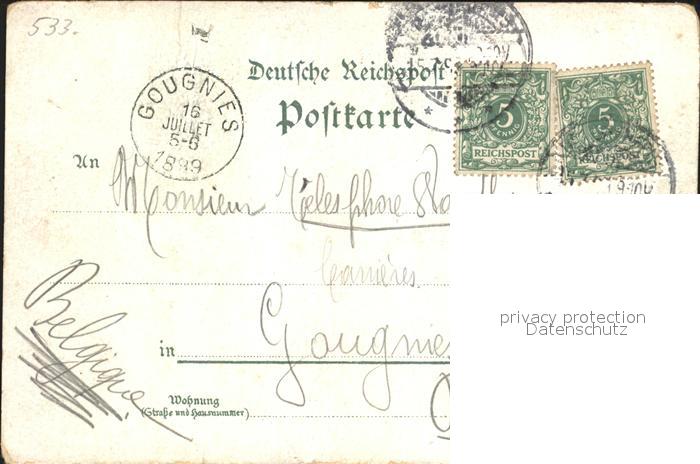 533.
Deutsche Reichspost
Postkarte
GOUGNIES
16
JUILLET
5-6
1899
5
PFENNIG
REICHSPOST
5
REICHSPOST
An
Monsieur Télesphore
Carrières
in Gougnies
Belgique
Wohnung
(Straße und Hausnummer)
privacy protection
Datenschutz